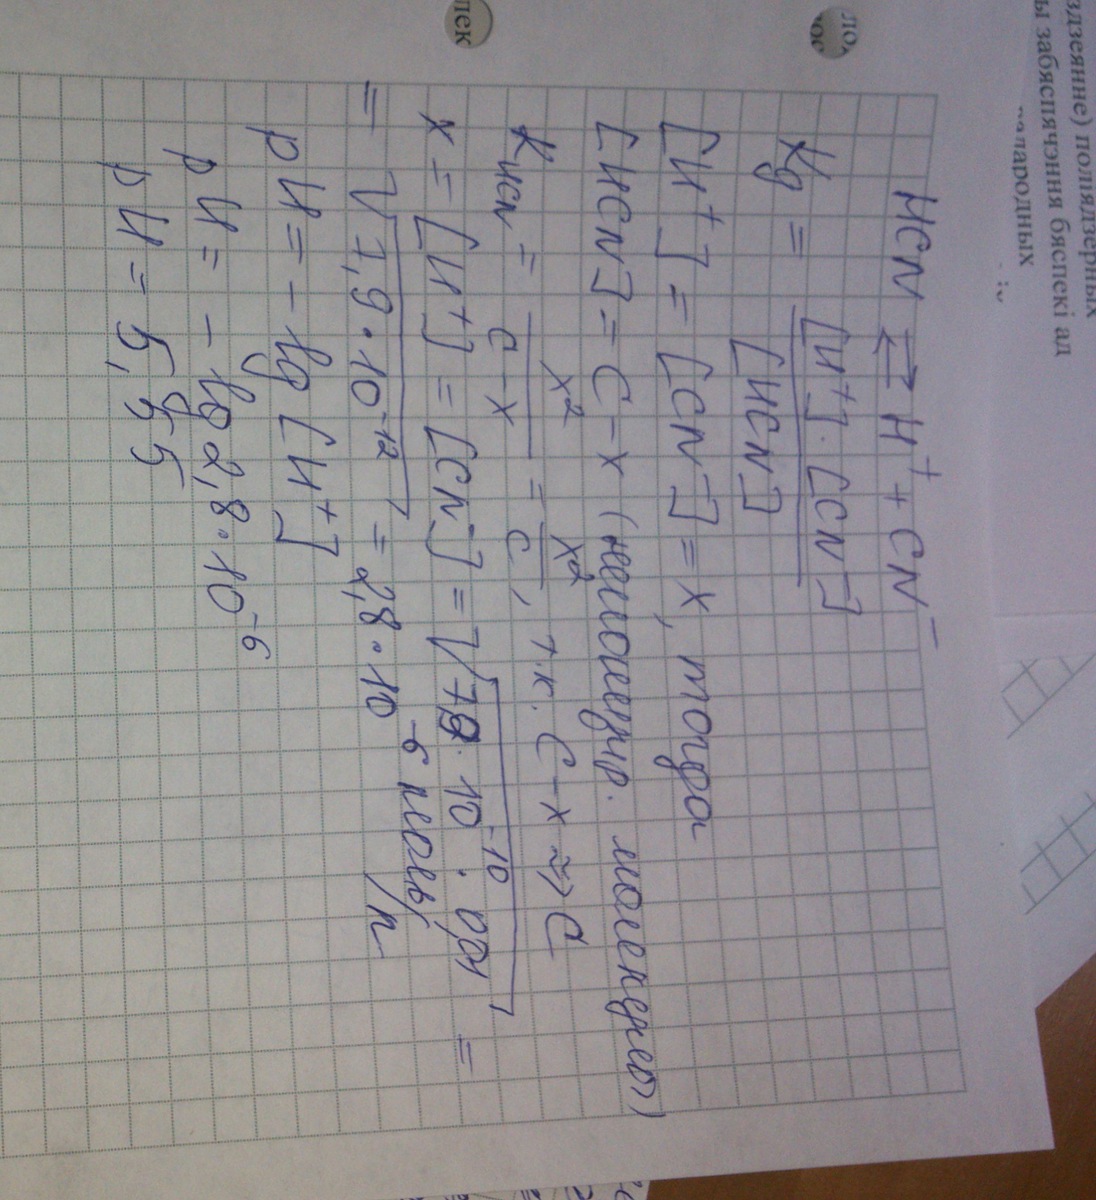 здзеянне) поліядзерных
ы забяспячэння бяспекі ад
лек
HCN ⇄ H⁺ + CN⁻
Kg = [H⁺]·[CN⁻] / [HCN]
[H⁺] = [CN⁻] = x, тогда
[HCN] = C – x (неионизир. молекулы)
K HCN = x² / C – x = x² / C, т.к. C – x ≈> C
x = [H⁺] = [CN⁻] = √7,9·10⁻¹⁰ · 0,01 =
= √7,9·10⁻¹² = 2,8·10⁻⁶ моль/л
pH = – lg [H⁺]
pH = – lg 2,8·10⁻⁶
pH = 5,55